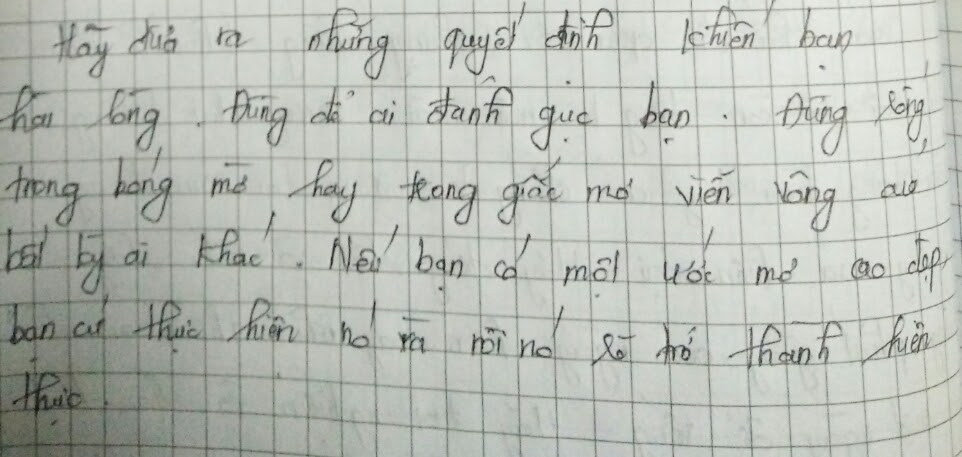 Hãy đưa ra những quyết định khiến bạn
hài lòng. Đừng để ai đánh gục bạn. Đừng sống
trong bóng mơ hay trong giấc mơ viển vông của
bất kỳ ai khác. Nếu bạn có một ước mơ cao đẹp
bạn cứ thực hiện nó ra rồi nó sẽ trở thành hiện
thực.